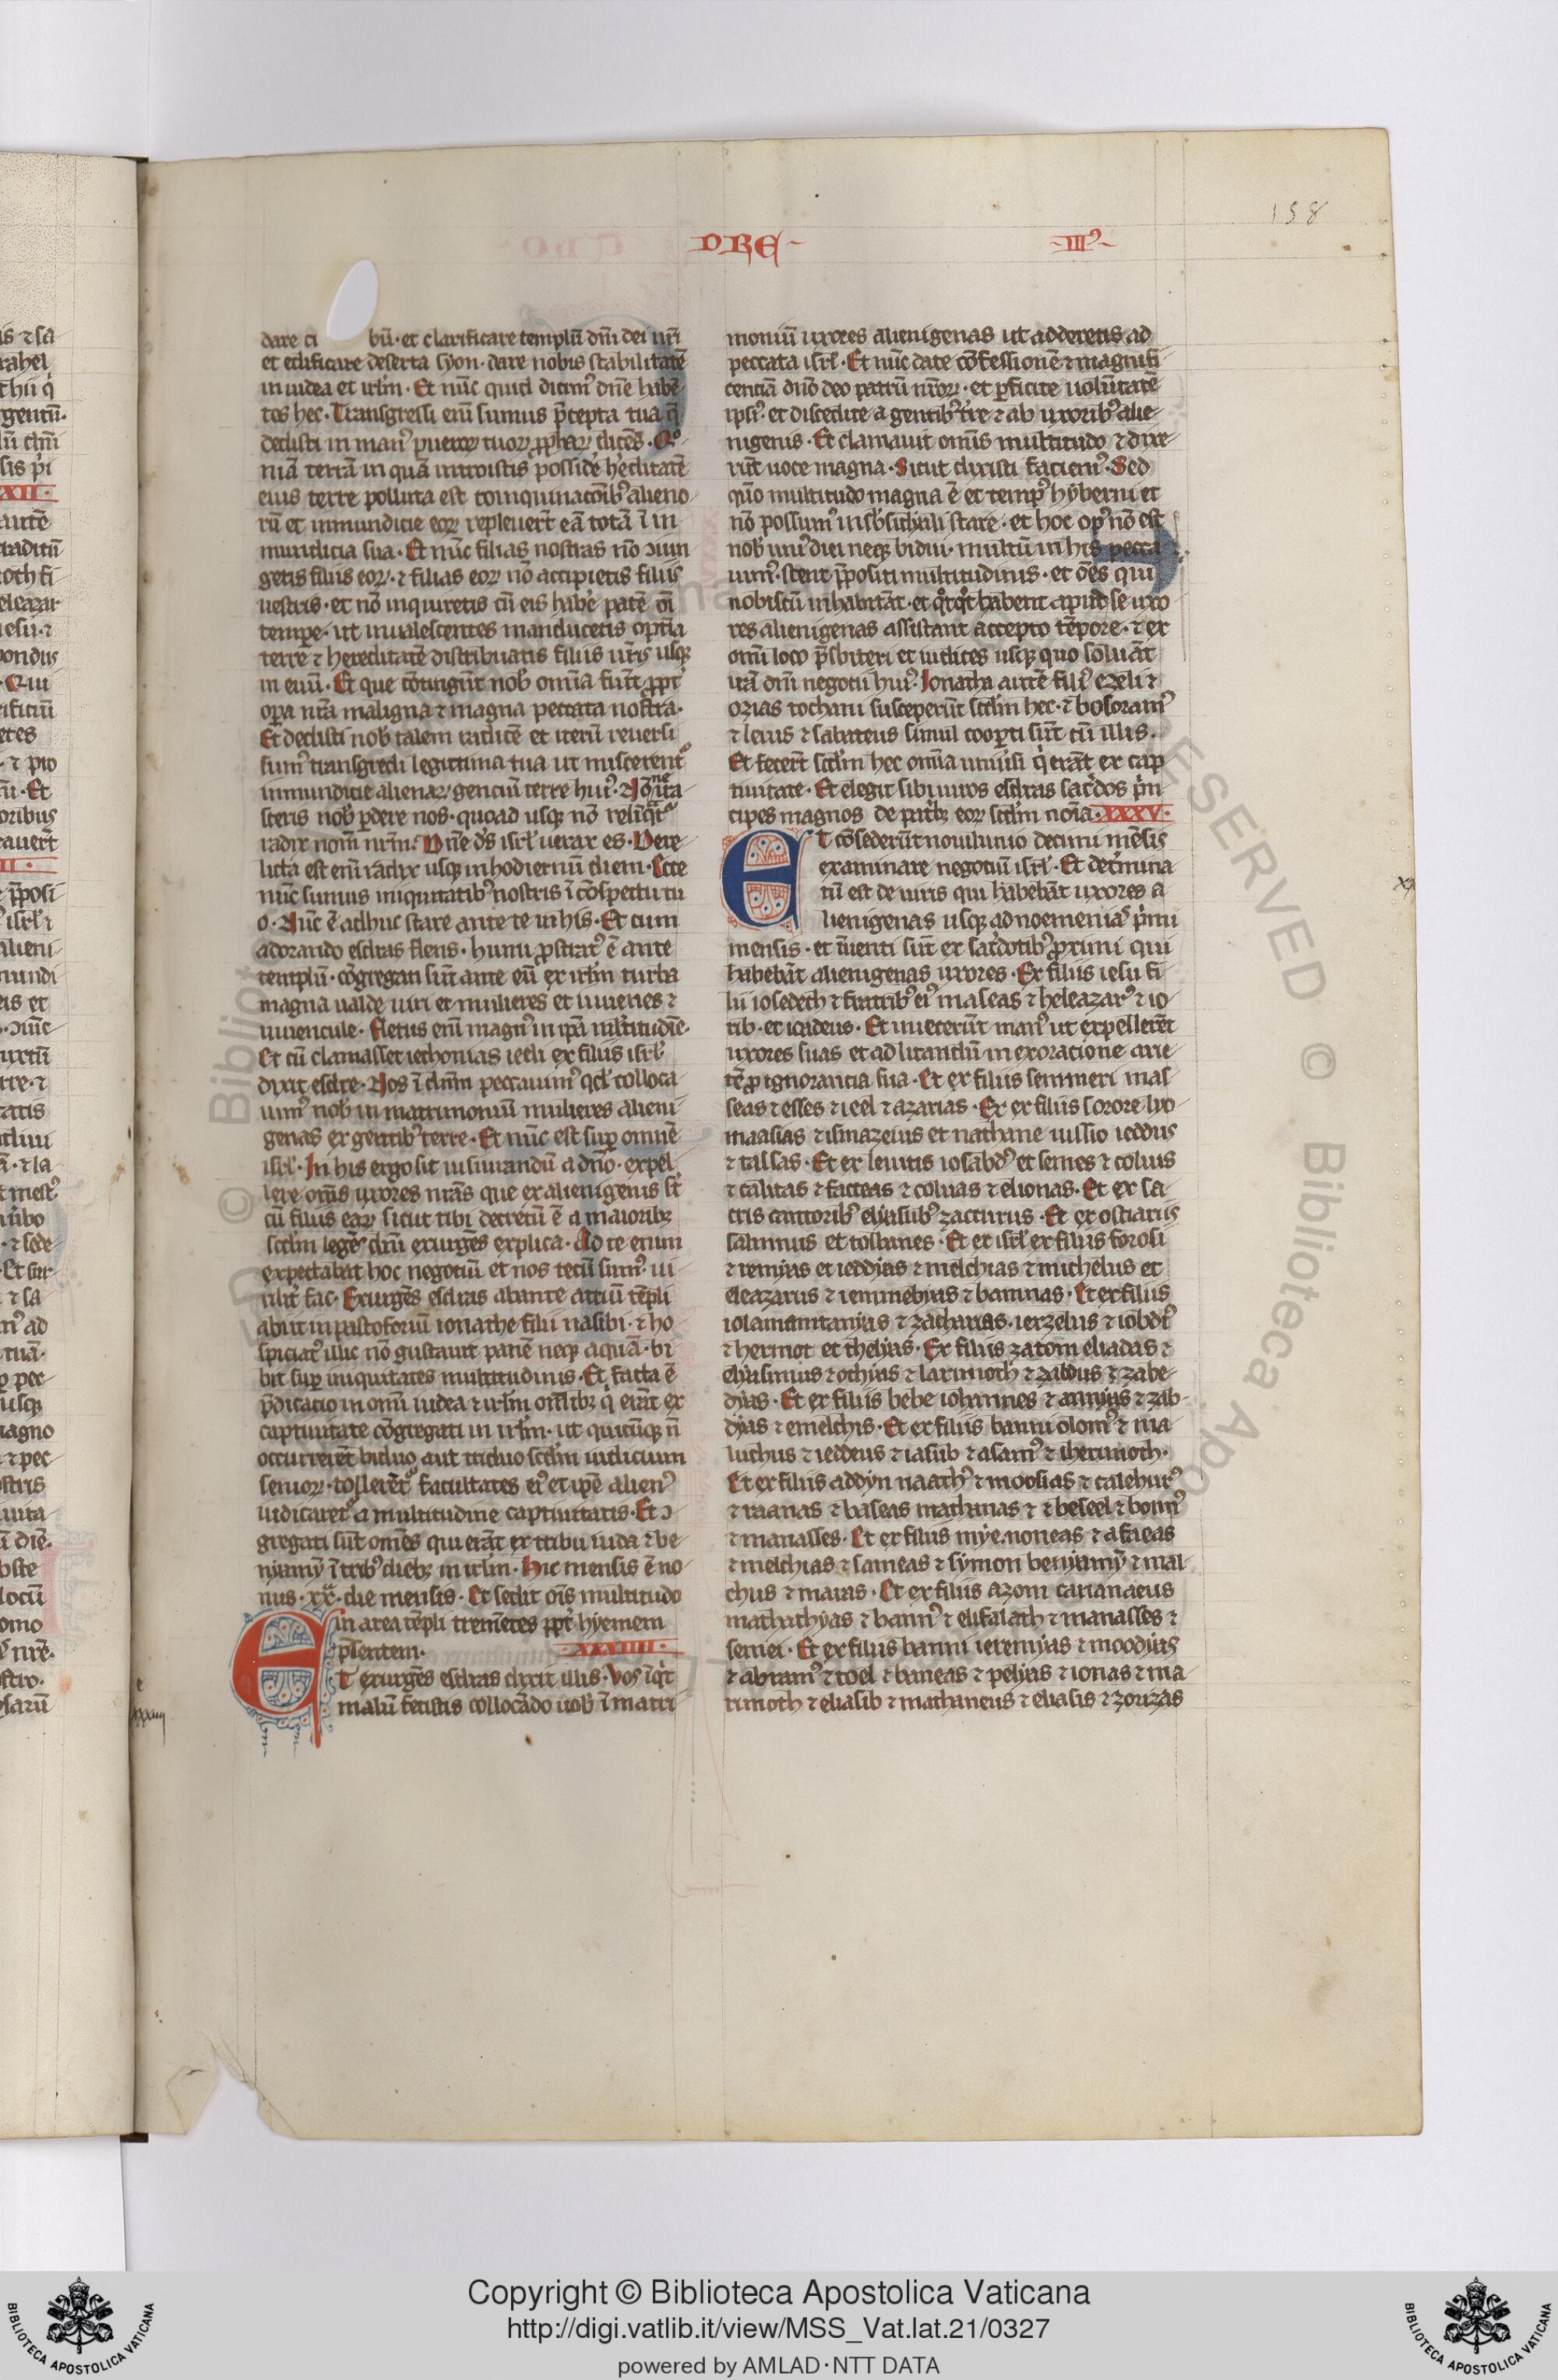 158
DRE
III᾽
dare ci bū· et clarificare templū dn̄i dei nr̄i
et edificare deserta syon· dare nobis stabilitatē
in iudea et irl̄m· Et nūc quid dicim᾽ dn̄e habē
tes hec· Transgressi eni sumus p̄cepta tua q̄
dedisti in man᾽ pueroꝝ tuoꝝ ꝓphaꝝ dicēs· Qo
niā terrā in quā introistis possidē h'editatē
eius terre polluta est coinquinacōib᾽ alieno
rū et inmundicie eoꝝ repleuerт̄ eā totā ī in
mundicia sua· Et nūc filias nostras nō ↄiun
getis filiis eoꝝ· ⁊ filias eoꝝ nō accipietis filiis
uestris· et nō inquiretis cū eis hab'e patē oī
tempe· ut inualescentes manducetis optīa
terre ⁊ hereditatē distribuatis filiis ur̄is usqꝫ
in euū· Et que cōtingūt nob' omīa fiūt ꝓpt'
opa nr̄a maligna ⁊ magna peccata nostra·
Et dedisti nob' talem radicē et iterū reuersi
sum᾽ transgredi legittima tua ut miscerent᾽
inmundicie alienaꝝ genciū terre hui᾽· Nōne ira
sceris nob' ꝑdere nos· quoad usqꝫ nō relīqt᾽
radix nom̄ nr̄m· Dn̄e ds̄ isrl' uerax es· Dere
licta est eni radix usqꝫ in hodiernū diem· Ecce
nūc sumus iniquitatib᾽ nostris ī cōspectu tu
o· Nūc ē adhuc stare ante te in his· Et cum
adorando esdras flens· humi ꝓstrat᾽ ē ante
templū· cōgregati sūt ante eū ex irl̄m turba
magna ualde uiri et mulieres et iuuenes ⁊
iuuencule· Fletus eni magn᾽ in ip̄a ml'titudīe·
Et cū clamasset iechonias ieeli ex filiis isrl'
dixit esdre· Nos ī dn̄m peccauim᾽ qd' colloca
uim᾽ nob' in matrimoniū mulieres alieni
genas ex gentib᾽ terre· Et nūc est suꝑ omnē
isrl'· In his ergo sit iusiurandū a dn̄o· expel
lere om̄s uxores nrās que ex alienigenis st'
cū filiis eaꝝ sicut tibi decretū ē a maioribꝫ
scd̄m legē dn̄i exurgēs explica· Ad te enim
expectabat hoc negotiū et nos tecū sum᾽ ui
rilit' fac· Exurgēs esdras abante atriū tēpli
abiit in pastoforiū ionathe filii nasibi· ⁊ ho
spiciat᾽ illic nō gustauit panē neqꝫ aquā· bi
bit suꝑ iniquitates multitudinis· Et facta ē
p̄dicacio in omī iudea ⁊ irl̄m om̄ibꝫ q' erāt ex
captiuitate cōgregati in irl̄m· ut quicūqꝫ n̄
occurrerēt biduo aut triduo scd̄m iudicium
senioꝝ· tollerēt᾽ facultates ei᾽ et ip̄e alien᾽
iudicaret᾽ a multitudine captiuitatis· Et ↄ
gregati sūt omēs qui erāt ex tribu iuda ⁊ be
nyamȳ ī trib᾽ diebꝫ in irl̄m· Hic mensis ē no
nus· xx· die mensis· Et sedit oīs multitudo
in area tēpli tremētes ꝓpt' hyemem
p̄sentem· XXXIIII·
ET exurgēs esdras dixit illis· Vos īqt'
malū fecistis collocādo uob' ī matri
moniū uxores alienigenas ut adderetis ad
peccata isrl'· Et nūc date cōfessionē ⁊ magnifi
cenciā dn̄o deo patrū nr̄oꝝ· et ꝑficite uolūtatē
ipsi᾽· et discedite a gentib᾽ tr̄e ⁊ ab uxorib᾽ alie
nigenis· Et clamauit omīs multitudo ⁊ dixe
rūt uoce magna· Sicut dixisti faciem᾽· Sed
qm̄o multitudo magna ē et temp᾽ hyberni et
nō possum᾽ insb'sidiali stare· et hoc op᾽ nō est
nob' uni᾽ diei neqꝫ bidui· multū in his pecca
uim᾽· stent p̄positi multitudinis· et oēs qui
nobiscū inhabitāt· et qtqt habent apud se uxo
res alienigenas assistant accepto tēpore· ⁊ ex
omī loco p̄sbiteri et iudices usqꝫ quo soluāt
irā dn̄i negotii hui᾽· Ionatha autē fili᾽ ezeli ⁊
ozias tochani susceperūt scd̄m hec· ⁊ bosoram᾽
⁊ leuis ⁊ sabateus simul coopti sūt cū illis·
Et fecerт̄ scd̄m hec omīa uniūsi q' erāt ex cap
tiuitate· Et elegit sibi uiros esdras sac'dos p'n
cipes magnos de patribꝫ eoꝝ scd̄m noīa· XXXV·
ET cōsederūt nouilunio decimi mēsis
examinare negotiū isrl'· Et det'mina
tū est de uiris qui habebāt uxores a
lienigenas usqꝫ ad noemeniā p'mi
mensis· et īuenti sūt ex sac'dotib᾽ ꝓximi qui
habebāt alienigenas uxores· Ex filiis iesu fi
lii iosedech ⁊ fratrib᾽ ei᾽ maseas ⁊ heleazar᾽ ⁊ io
rib· et ioadeus· Et iniecerūt man᾽ ut expellerēt
uxores suas et ad litandū in exoracione arie
tē ꝓ ignorancia sua· Et ex filiis semmeri mas
seas ⁊ esses ⁊ ieel ⁊ azarias· Et ex filiis sorore lyo
maasias ⁊ ismazeius et nathane iussio ieddus
⁊ talsas· Et ex leuitis iosabd᾽ et semes ⁊ colius
⁊ calitas ⁊ facteas ⁊ coluas ⁊ elionas· Et ex sa
cris cantorib᾽ elyasub᾽ zacturus· Et ex ostiariis
salimus et tolbanes· Et ex isrl' ex filiis foroli
⁊ remyas et ieddyas ⁊ melchias ⁊ michelus et
eleazarus ⁊ iemmebyas ⁊ bannas· Et ex filiis
iolamamtanyas ⁊ zacharias· ierzelus ⁊ iobdт᾽
⁊ herimot et thelyas· Ex filiis zatom eliadas ⁊
elyasimus ⁊ othyas ⁊ larimoth ⁊ zabdus ⁊ zabe
dyas· Et ex filiis bebe iohannes ⁊ amnyas ⁊ zab
dyas ⁊ emelchis· Et ex filiis banni olom᾽ ⁊ ma
luchus ⁊ ieddeus ⁊ iasub ⁊ asam᾽ ⁊ iherimoth·
Et ex filiis addyn naath᾽ ⁊ moosias ⁊ calehur᾽
⁊ raanas ⁊ baseas mathanas ⁊ ⁊ beseel ⁊ bonn᾽
⁊ manasses· Et ex filiis mye· noneas ⁊ afaeas
⁊ melchias ⁊ sameas ⁊ symon benyamy ⁊ mal
chus ⁊ maias· Et ex filiis azom carianaeus
mathathyas ⁊ bann᾽ ⁊ elifalath ⁊ manasses ⁊
semei· Et ex filiis banni ieremyas ⁊ moodyas
⁊ abram᾽ ⁊ ioel ⁊ baneas ⁊ pelyas ⁊ ionas ⁊ ma
rimoth ⁊ eliasib ⁊ mathaneus ⁊ eliasis ⁊ zorizas
Copyright © Biblioteca Apostolica Vaticana
http://digi.vatlib.it/view/MSS_Vat.lat.21/0327
powered by AMLAD·NTT DATA
BIBLIOTECA APOSTOLICA VATICANA
BIBLIOTECA APOSTOLICA VATICANA